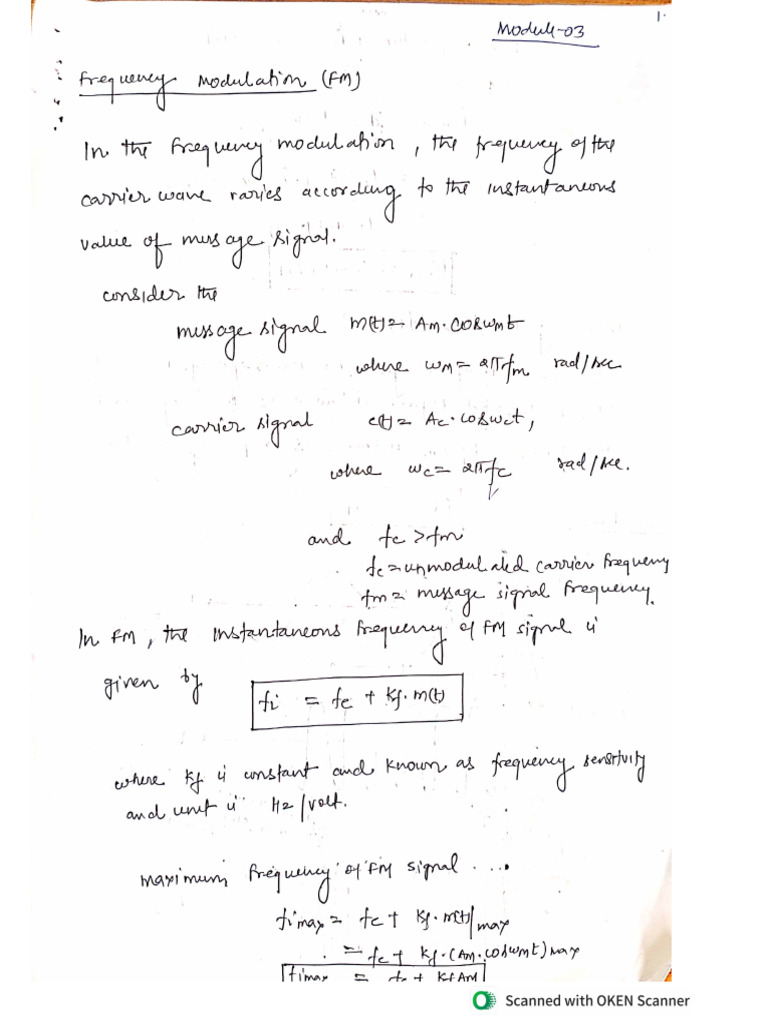 1.
Module-03
Frequency Modulation (FM)
In the frequency modulation, the frequency of the
carrier wave varies according to the instantaneous
value of message signal.
consider the
message signal m(t)= Am.coswmt
where wm= 2πfm rad/sec
carrier signal c(t)= Ac.coswct,
where wc= 2πfc rad/sec.
and fc >fm
fc=unmodulated carrier frequency
fm= message signal frequency.
In FM, the instantaneous frequency of FM signal is
given by fi = fc + kf.m(t)
where kf is constant and known as frequency sensitivity
and unit is Hz/volt.
maximum frequency of FM signal ....
fimax= fc+ kf.m(t)|max
= fc+ kf.(Am.coswmt)max
fimax = fc + kfAm
Scanned with OKEN Scanner